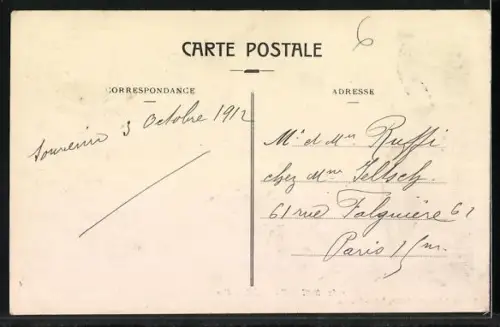 6
CARTE POSTALE
CORRESPONDANCE
ADRESSE
Souvenir 3 Octobre 1912
Mr et Mme Ruffi
chez Mme Jeltsch
61 rue Falguière 61
Paris 15me